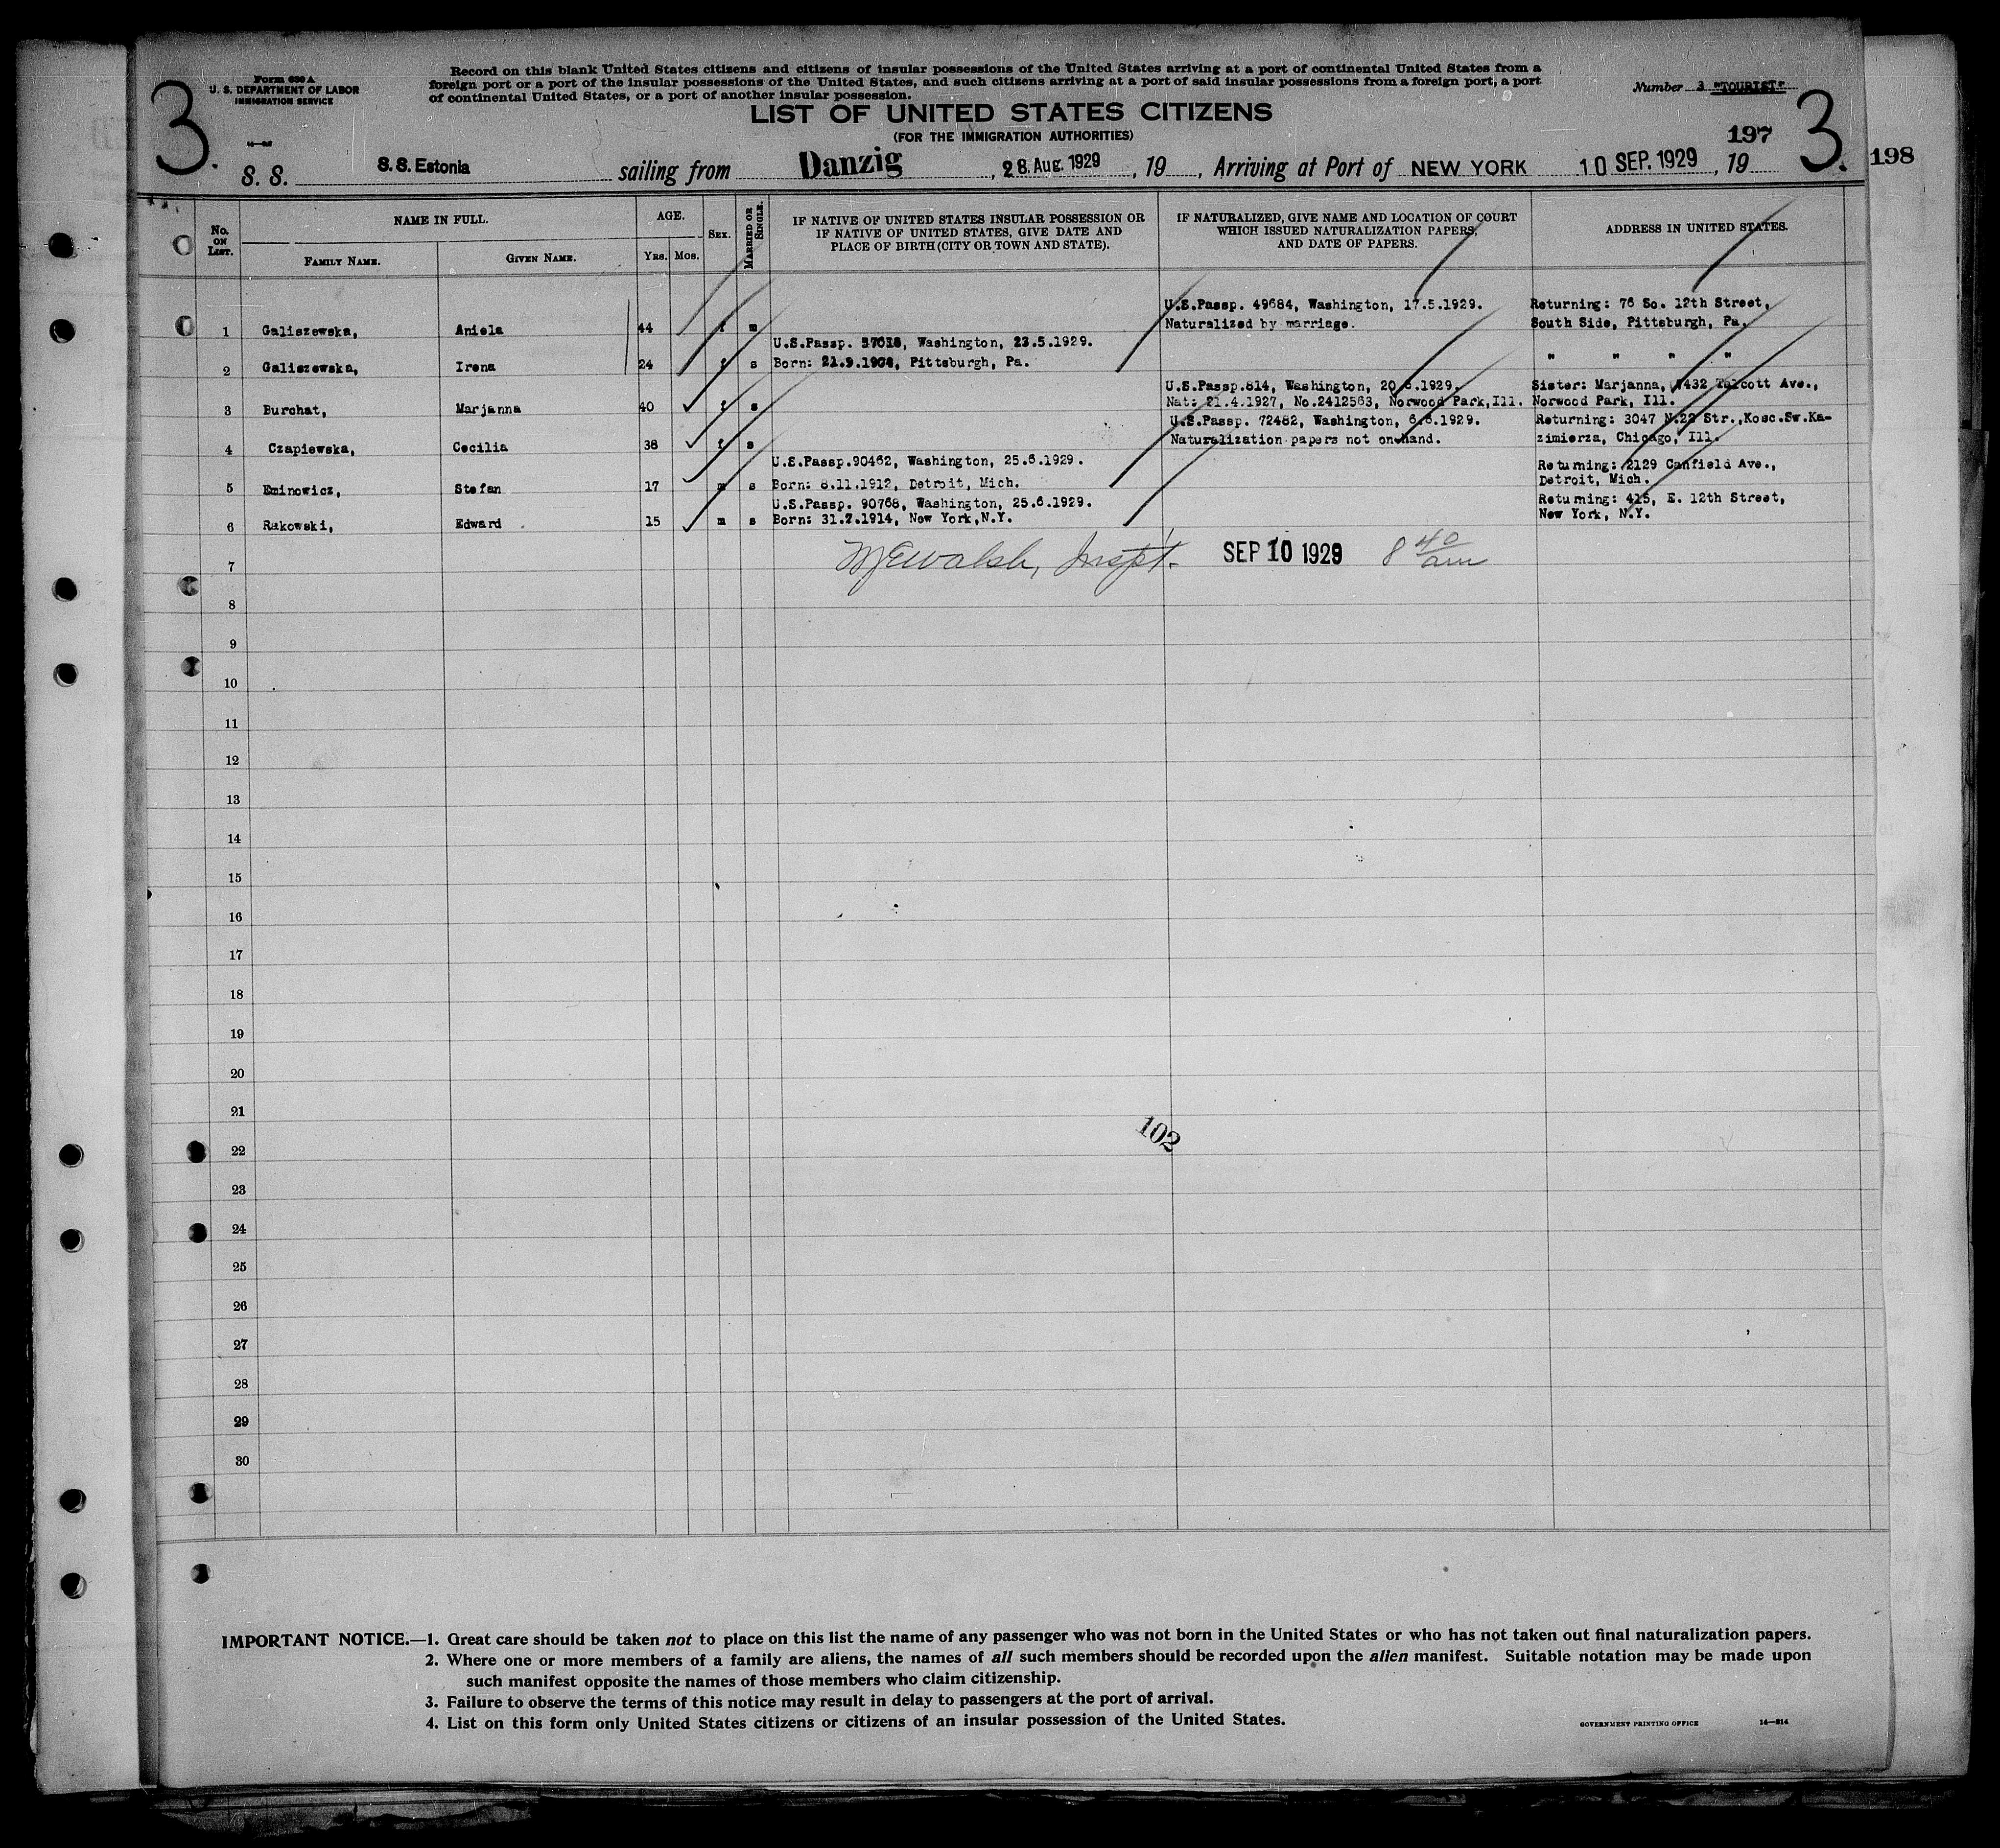 3.
Form 630 A
U. S. DEPARTMENT OF LABOR
IMMIGRATION SERVICE
Record on this blank United States citizens and citizens of insular possessions of the United States arriving at a port of continental United States from a
foreign port or a port of the insular possessions of the United States, and such citizens arriving at a port of said insular possessions from a foreign port, a port
of continental United States, or a port of another insular possession.
Number 3 "TOURIST"
LIST OF UNITED STATES CITIZENS
(FOR THE IMMIGRATION AUTHORITIES)
197
3.
198
S. S. S.S. Estonia sailing from Danzig, 28. Aug. 1929, 19, Arriving at Port of NEW YORK 10 SEP. 1929, 19
No. ON LIST.
NAME IN FULL.
FAMILY NAME.
GIVEN NAME.
AGE.
YRS. MOS.
SEX.
MARRIED OR SINGLE.
IF NATIVE OF UNITED STATES INSULAR POSSESSION OR
IF NATIVE OF UNITED STATES, GIVE DATE AND
PLACE OF BIRTH (CITY OR TOWN AND STATE).
IF NATURALIZED, GIVE NAME AND LOCATION OF COURT
WHICH ISSUED NATURALIZATION PAPERS,
AND DATE OF PAPERS.
ADDRESS IN UNITED STATES.
U.S.Passp. 49684, Washington, 17.5.1929. Returning: 76 So. 12th Street,
1 Galiszewska, Aniela 44 f m Naturalized by marriage. South Side, Pittsburgh, Pa.
U.S.Passp. Washington, 23.5.1929.
2 Galiszewska, Irena 24 f s Born: 21.9.1904, Pittsburgh, Pa. " " " "
U.S.Passp.814, Washington, 20.6.1929. Sister: Marjanna, 7432 Talcott Ave.,
3 Burchat, Marjanna 40 f s Nat: 21.4.1927, No.2412563, Norwood Park,Ill. Norwood Park, Ill.
U.S.Passp. 72482, Washington, 6.6.1929. Returning: 3047 N.22 Str.,Kosc.Sw.Ka-
4 Czapiewska, Cecilia 38 f s Naturalization papers not on hand. zimierza, Chicago, Ill.
U.S.Passp.90462, Washington, 25.6.1929. Returning: 2129 Canfield Ave.,
5 Eminowicz, Stefan 17 m s Born: 8.11.1912, Detroit, Mich. Detroit, Mich.
U.S.Passp. 90768, Washington, 25.6.1929. Returning: 415, E. 12th Street,
6 Rakowski, Edward 15 m s Born: 31.7.1914, New York,N.Y. New York, N.Y.
7 Walsh, Inspt. SEP 10 1929 8 40 am
8
9
10
11
12
13
14
15
16
17
18
19
20
21
102
22
23
24
25
26
27
28
29
30
IMPORTANT NOTICE.—1. Great care should be taken not to place on this list the name of any passenger who was not born in the United States or who has not taken out final naturalization papers.
2. Where one or more members of a family are aliens, the names of all such members should be recorded upon the alien manifest. Suitable notation may be made upon
such manifest opposite the names of those members who claim citizenship.
3. Failure to observe the terms of this notice may result in delay to passengers at the port of arrival.
4. List on this form only United States citizens or citizens of an insular possession of the United States.
GOVERNMENT PRINTING OFFICE 14—214